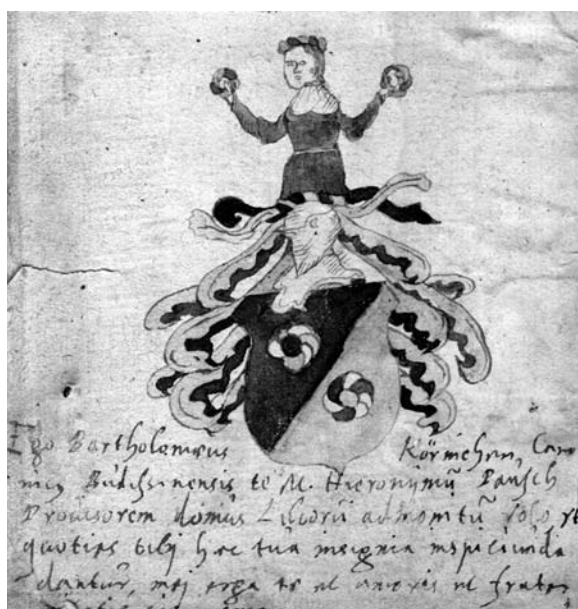 Ego Bartholomæus
Budissinensis te M. Hieronymũ Pansch
Provisorem domus Liborii admonitũ volo, vt
quoties tibi hæc tua insignia inspicienda
dantur, mei erga te vel amoris vel frater